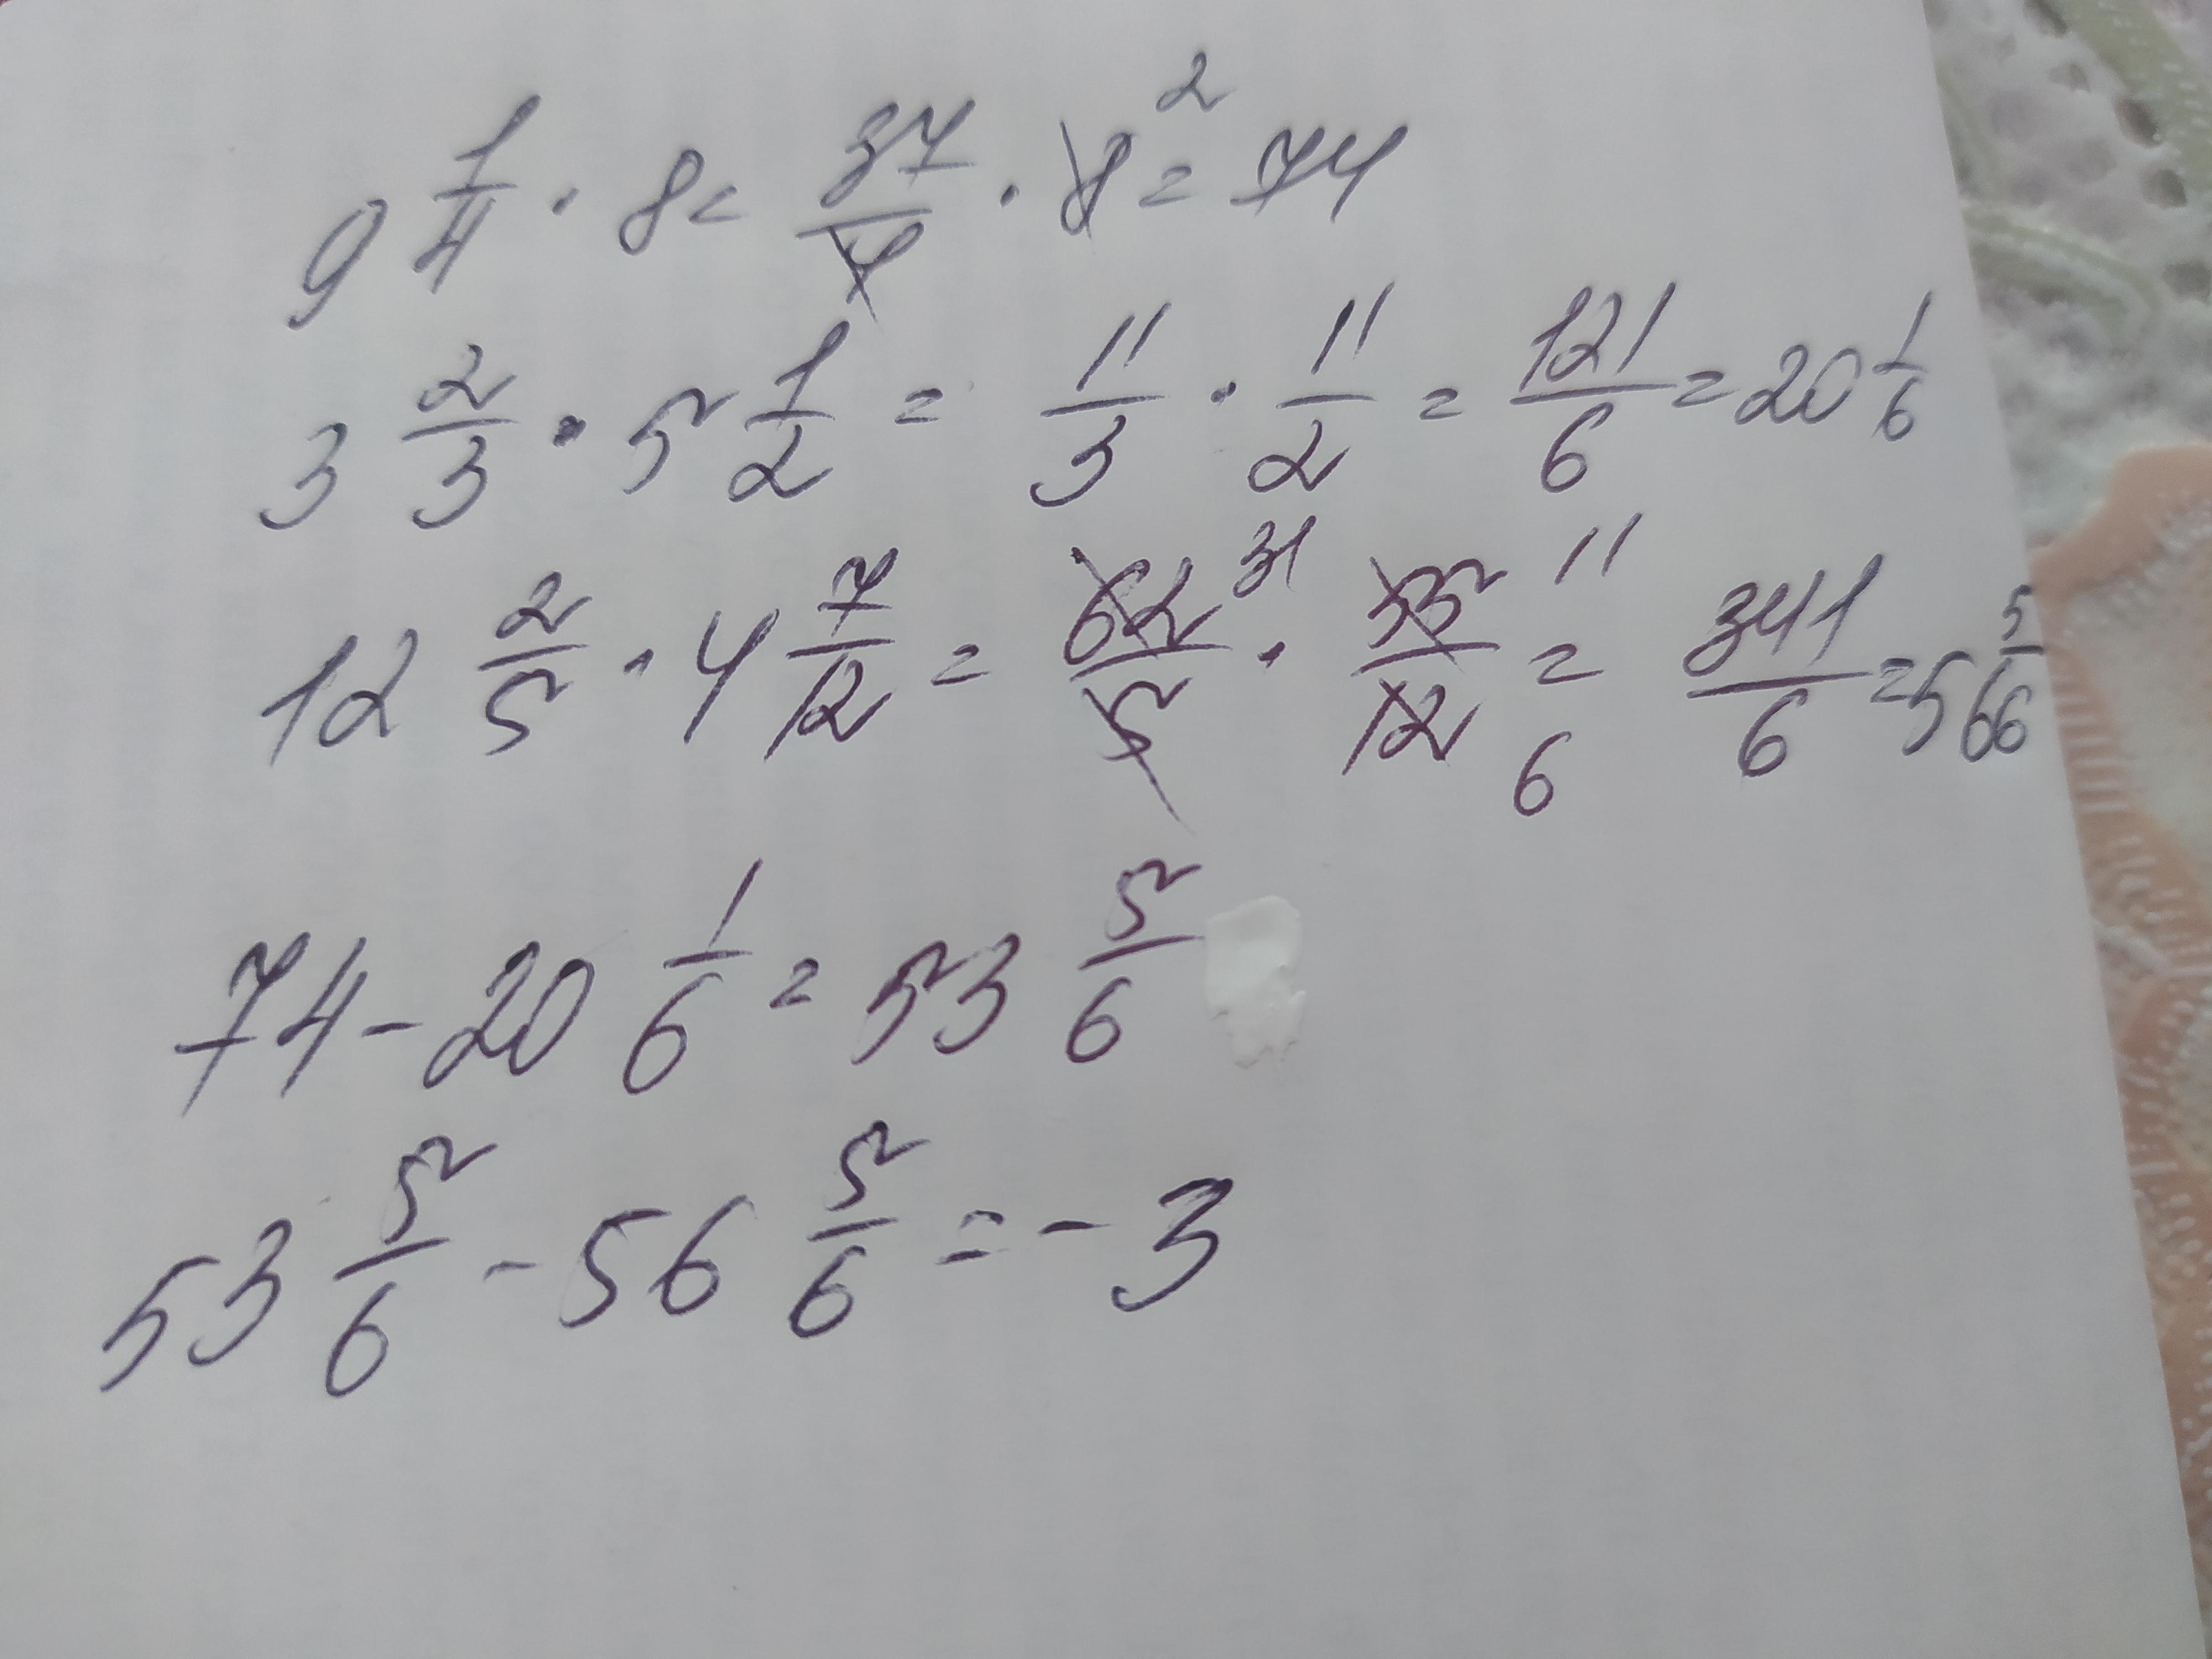 9 1/4 · 8 = 37/4 · 8 2 = 74
3 2/3 · 5 1/2 = 11/3 · 11/2 = 121/6 = 20 1/6
12 2/5 · 4 7/12 = 62/5 31 · 55/12 11/6 = 341/6 = 56 5/6
74 - 20 1/6 = 53 5/6
53 5/6 - 56 5/6 = - 3